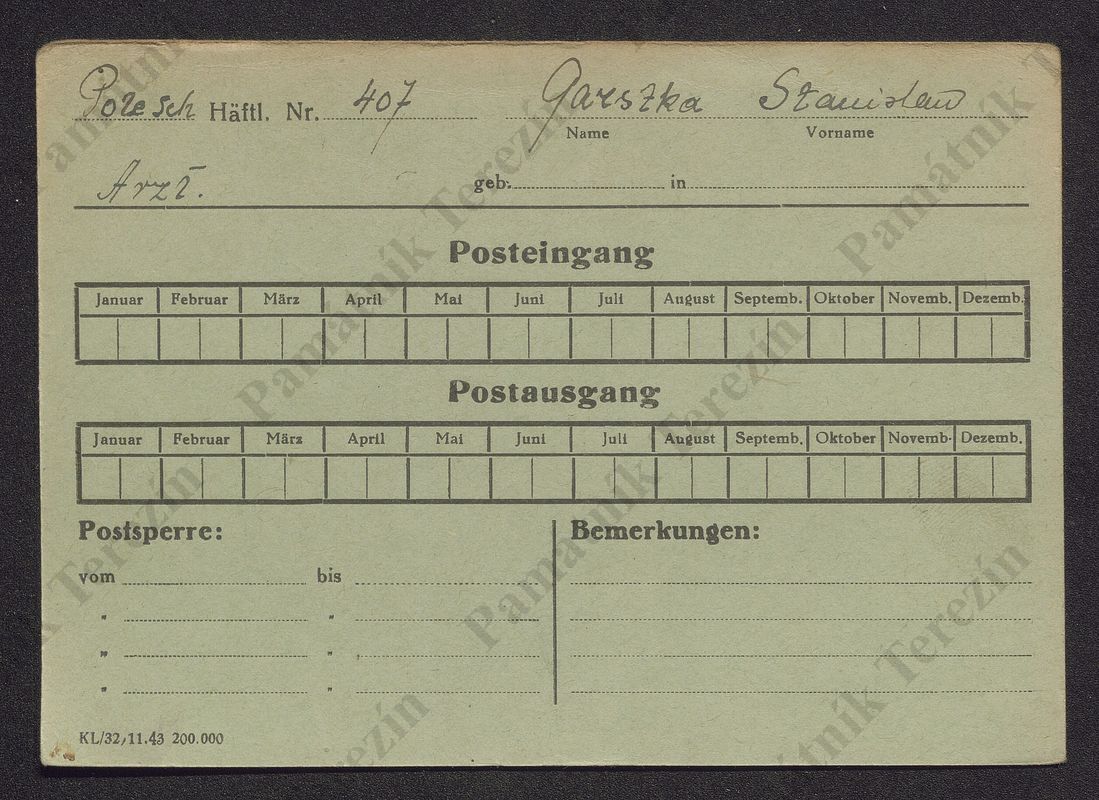 Polesch Häftl. Nr. 407 Garszka Stanislaw
Name Vorname
Arzt. geb. in
Posteingang
Januar Februar März April Mai Juni Juli August Septemb. Oktober Novemb. Dezemb.
Postausgang
Januar Februar März April Mai Juni Juli August Septemb. Oktober Novemb. Dezemb.
Postsperre: Bemerkungen:
vom bis
" "
" "
" "
KL/32, 11.43 200.000
Památník Terezín